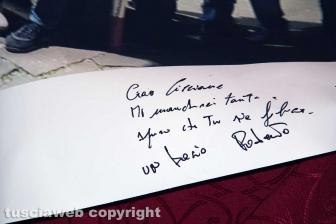 Ciao
Mi mancherai tanto
spero che Tu sia felice
un bacio Roberto
tusciaweb copyright